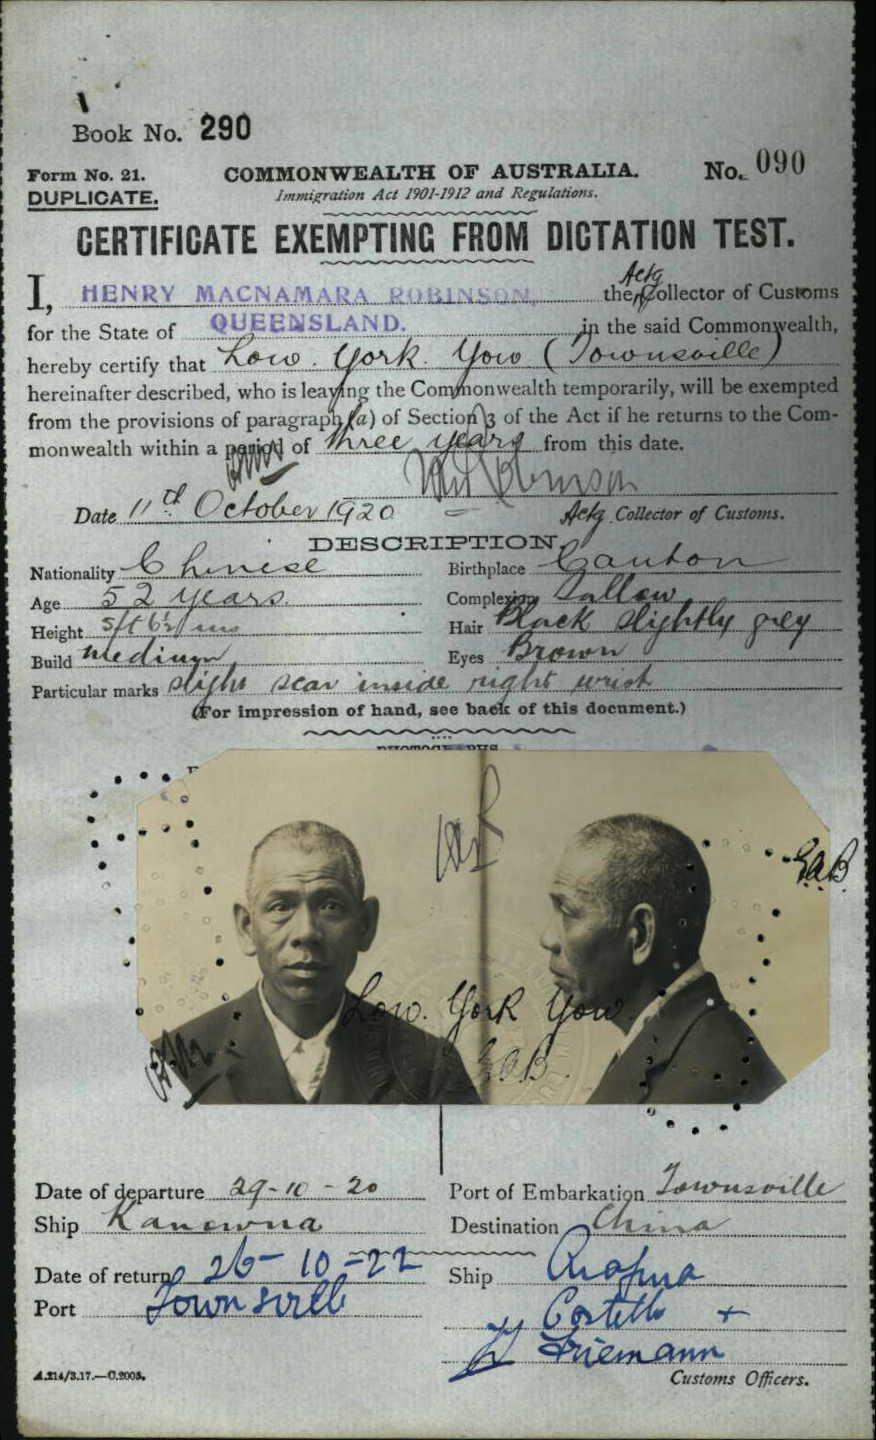 Book No. 290
Form No. 21. COMMONWEALTH OF AUSTRALIA. No. 090
DUPLICATE. Immigration Act 1901-1912 and Regulations.
CERTIFICATE EXEMPTING FROM DICTATION TEST.
Actg
I, HENRY MACNAMARA ROBINSON, the Collector of Customs
for the State of QUEENSLAND. in the said Commonwealth,
hereby certify that Low. York. Yow (Townsville)
hereinafter described, who is leaving the Commonwealth temporarily, will be exempted
from the provisions of paragraph (a) of Section 3 of the Act if he returns to the Com-
monwealth within a period of three years from this date.
Date 11th October 1920 Actg Collector of Customs.
DESCRIPTION.
Nationality Chinese Birthplace Canton
Age 52 years. Complexion Sallow
Height 5ft 6½ ins Hair Black slightly grey
Build medium Eyes Brown
Particular marks slight scar inside right wrist
(For impression of hand, see back of this document.)
PHOTOGRAPHS
GAB.
Low. York Yow.
GAB.
Date of departure 29-10-20 Port of Embarkation Townsville
Ship Kanowna Destination China
Date of return 26-10-22 Ship
Port Townsville Costello +
Friemann
A.214/3.17.—C.2005. Customs Officers.